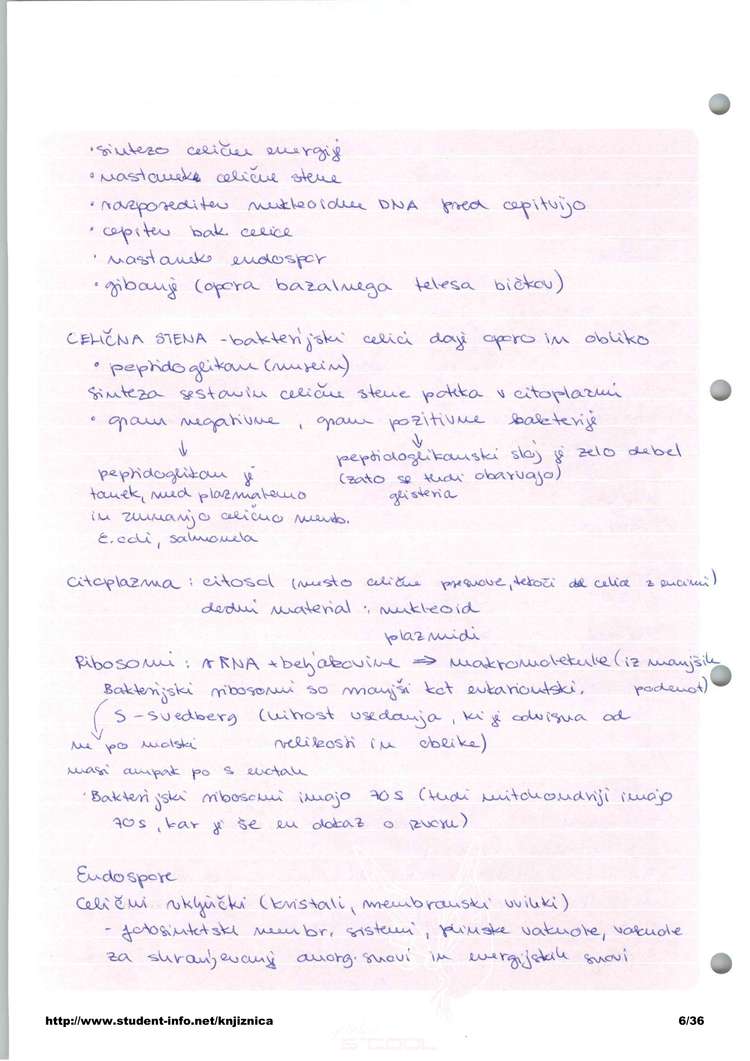 • sintezo celične energije
• nastanek celične stene
• razporeditev nukleoidne DNA pred cepitvijo
• cepitev bak. celice
• nastanek endospor
• gibanje (opora bazalnega telesa bičkov)
CELIČNA STENA - bakterijski celici daje oporo in obliko
• peptidoglikan (murein)
sinteza sestavin celične stene poteka v citoplazmi
• gram negativne, gram pozitivne bakterije
↓ ↓
peptidoglikanski sloj je zelo debel
peptidoglikan je (zato se tudi obarvajo)
tanek, med plazmatemo glisteria
in zunanjo celično memb.
E.coli, salmonela
Citoplazma : citosol (mesto celične presnove, tekoči del celice z encimi)
dedni material : nukleoid
plazmidi
Ribosomi : rRNA + beljakovine ⇒ makromolekule (iz manjših
Bakterijski ribosomi so manjši kot evkariontski. podenot)
S - svedberg (hitrost usedanja, ki je odvisna od
ne po molski velikosti in oblike)
masi ampak po s enotah
• Bakterijski ribosomi imajo 70S (tudi mitohondriji imajo
70S, kar je še en dokaz o izvoru)
Endospore
Celični vključki (kristali, membranski uvihki)
- fotosintetski membr. sistemi, plinske vakuole, vakuole
za shranjevanje anorg. snovi in energijskih snovi
http://www.student-info.net/knjiznica 6/36
S'COOL